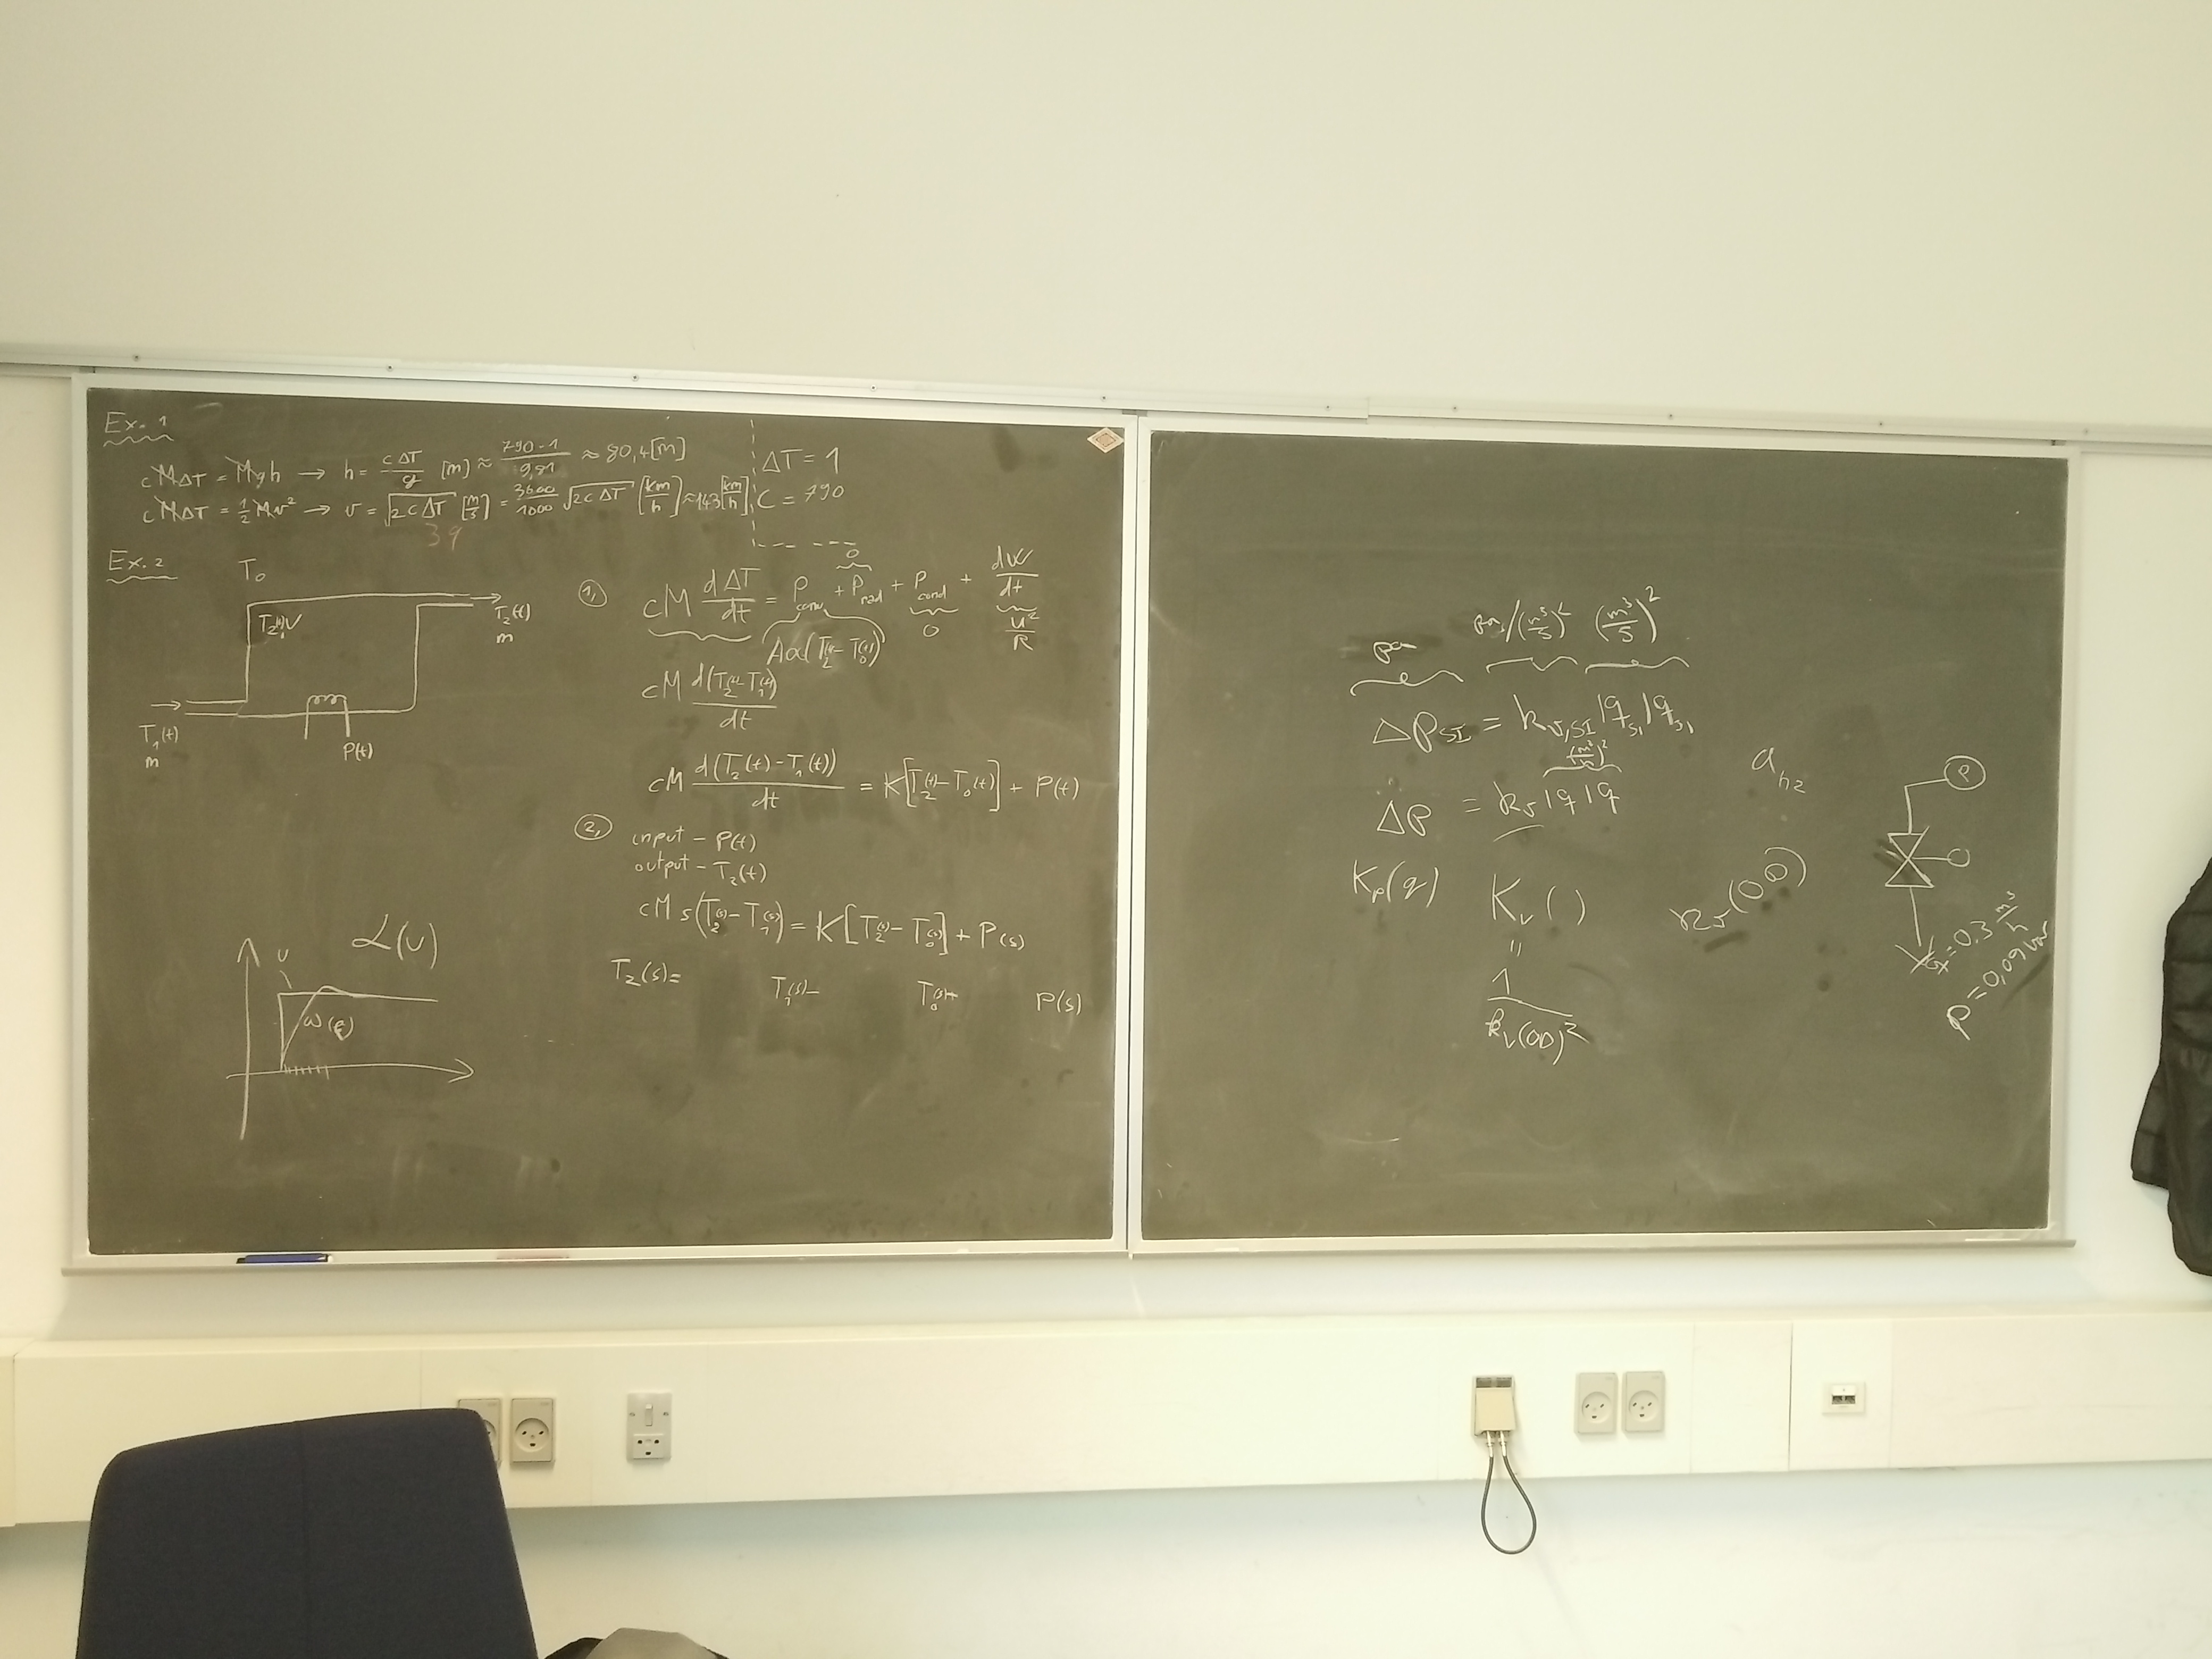 Ex. 1
cMΔT = Mgh → h = cΔT/g [m] ≈ 790·1/9,81 ≈ 80,4[m]
cMΔT = 1/2 Mv² → v = √(2cΔT) [m/s] = 3600/1000 √(2cΔT) [km/h] ≈ 143[km/h]
39
ΔT = 1
C = 790
Ex. 2
T₀
T₂(t) V
T₂(t)
m
T₁(t)
m
P(t)
1,
cM dΔT/dt = P conv + P rad + P cond + dW/dt
0
0
u²/R
Aα(T₂(t) - T₀(t))
cM d(T₂(t) - T₁(t))/dt
cM d(T₂(t) - T₁(t))/dt = K[T₂(t) - T₀(t)] + P(t)
2,
input - P(t)
output - T₂(t)
cM s(T₂(s) - T₁(s)) = K[T₂(s) - T₀(s)] + P(s)
T₂(s) = T₁(s) - T₀(s) P(s)
ℒ(u)
u
pa
(m³/s)²
ΔP SI = k v,SI |q SI| q SI
ΔP = k v |q| q
K v ( )
=
1/k v(OD)²
k v(OD)
P
= 0.3 m³/h
P = 0,09 bar